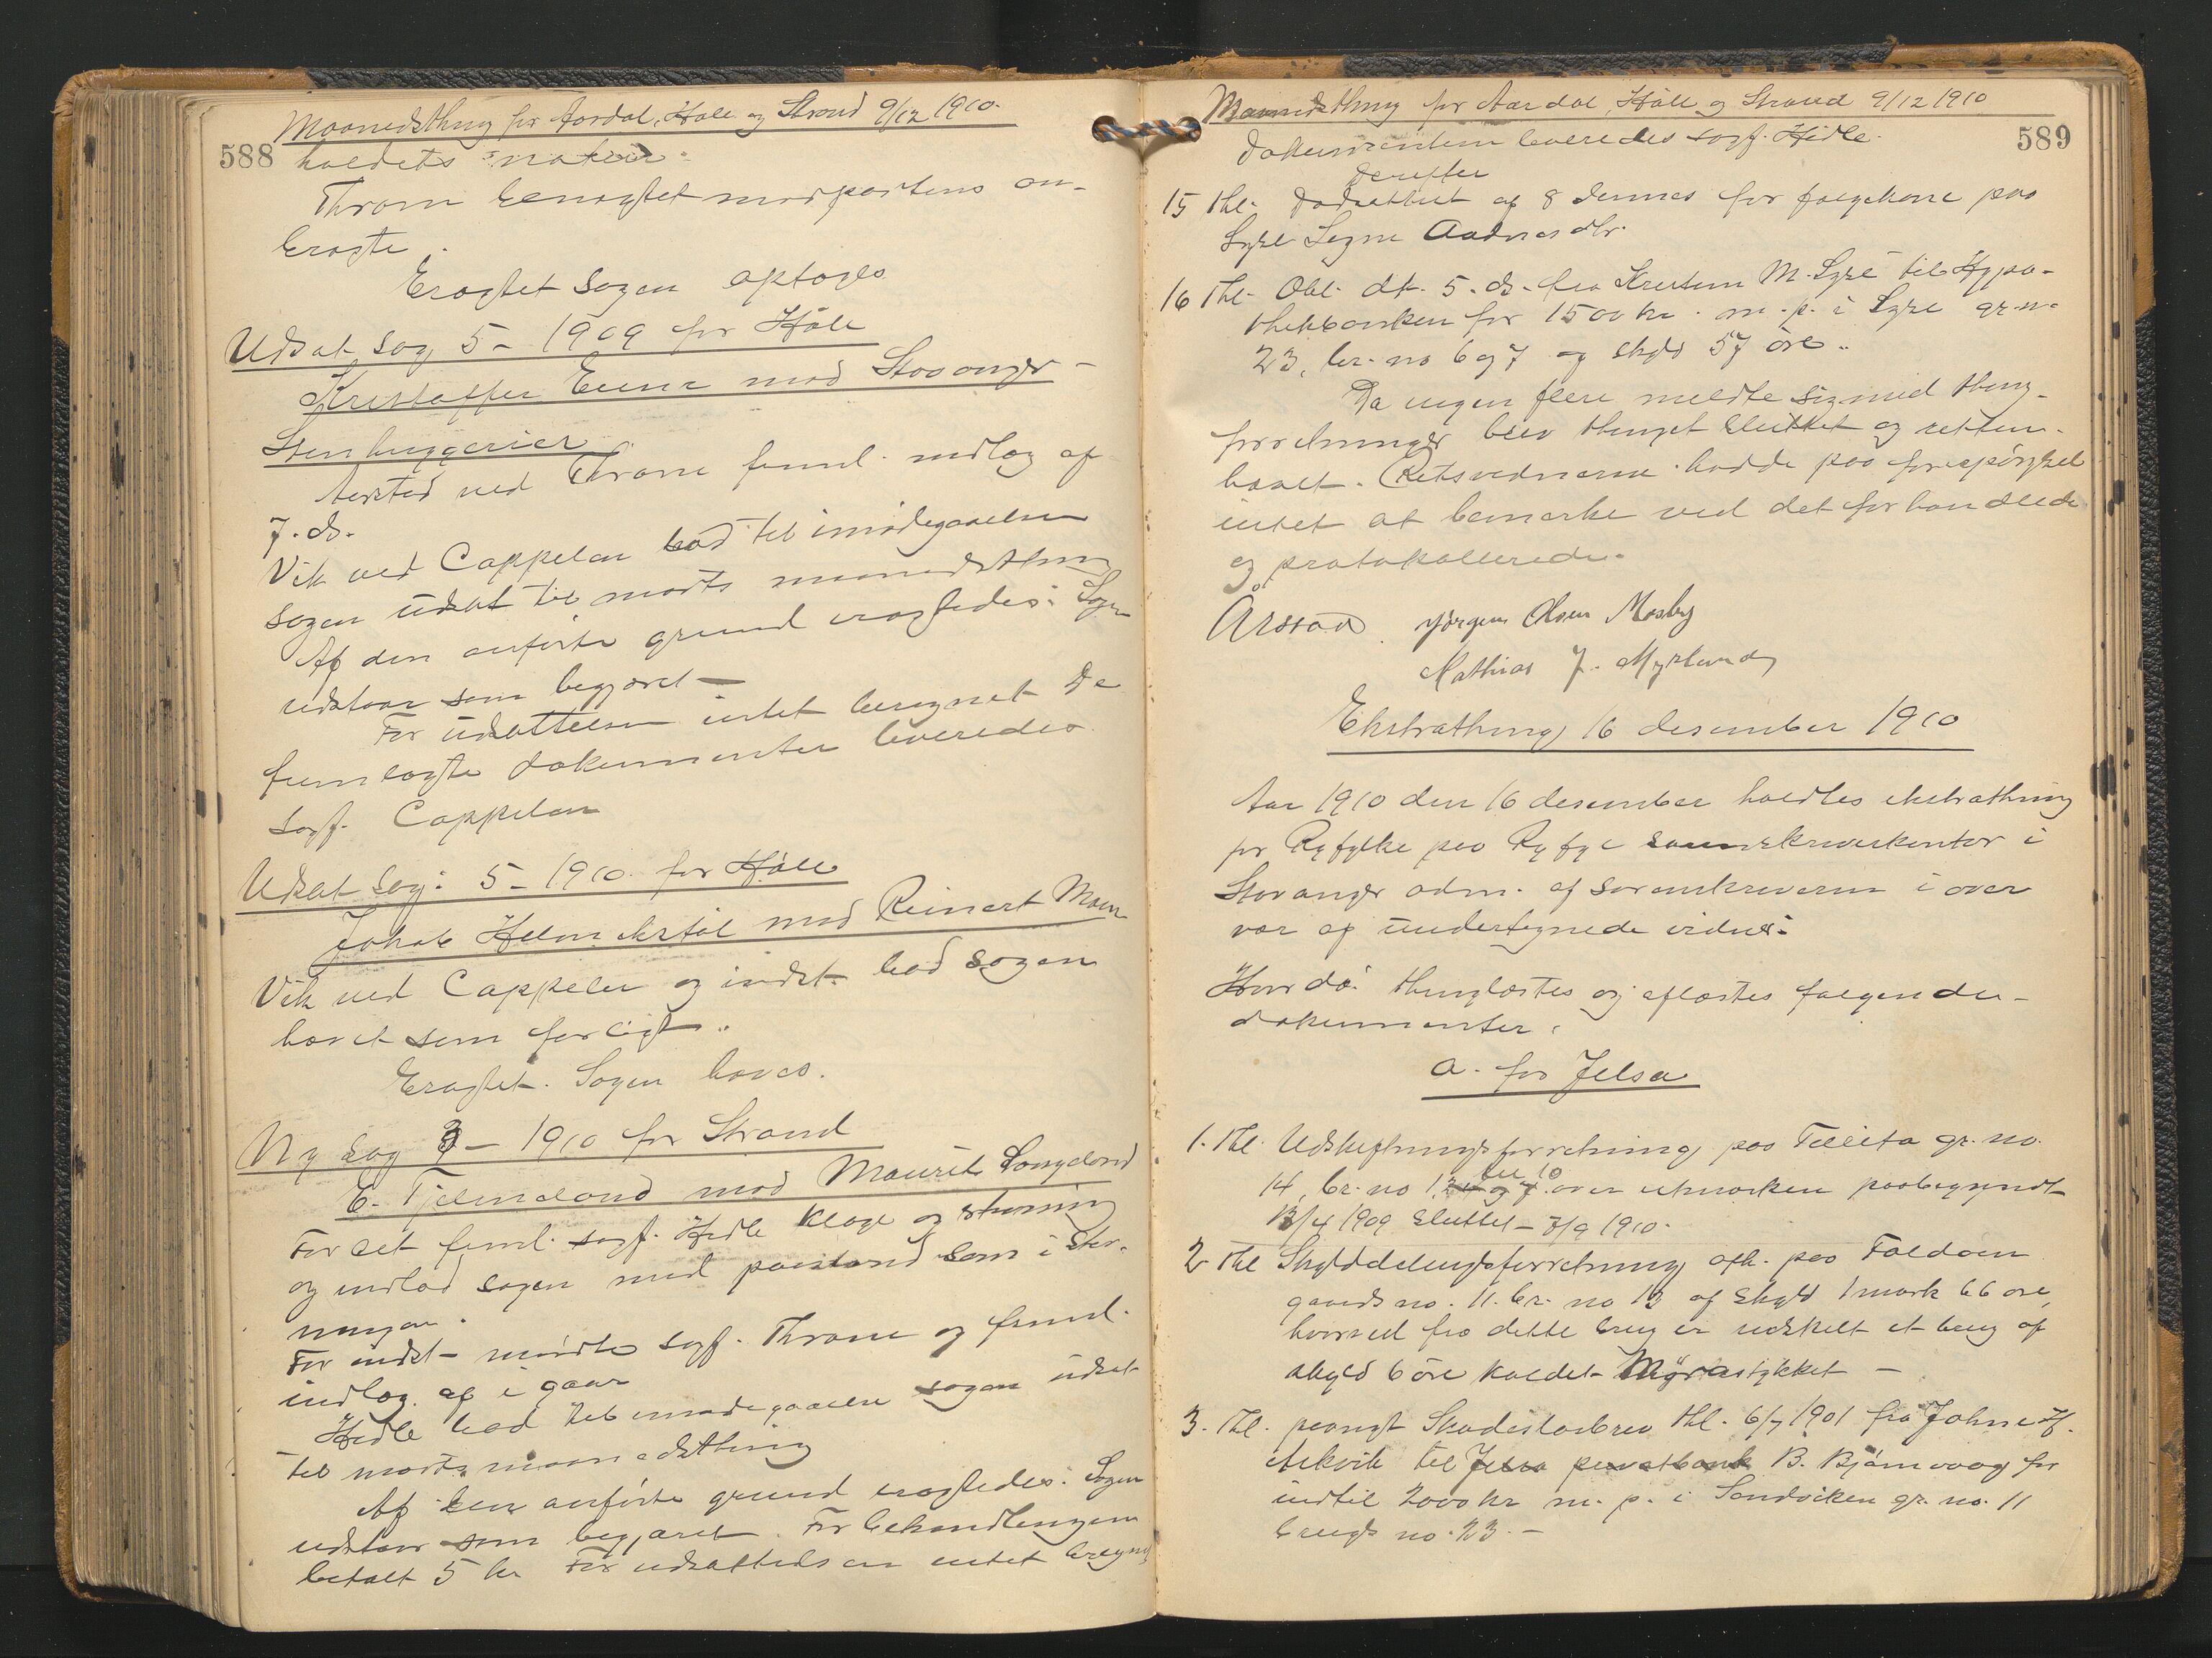 Maanedsthing for Aardal, Høle og Strand 9/12 1910.
588
holdets natur.
Thrane benægtet modpartens an-
bragte.
Eragtet Sagen optages
Udsat sag 5 - 1909 for Høle
Kristoffer Eiene mod Stavanger
Stenhuggerier
Aarstad ved Thrane freml. indlæg af
7. ds.
Vik ved Cappelen bad til imødegaaelse
sagen udsat til marts maanedsthing
Af den anførte grund eragtedes: Sagen
udstaar som begjæret -
For udsættelsen intet beregnet De
fremlagte dokumenter leveredes
sagf. Cappelen
Udsat sag: 5 - 1910 for Høle
Jakob Helmikstøl mod Reinert Moen
Vik ved Cappelen og indst. bad sagen
hævet som forligt.
Eragtet. Sagen hæves.
Ny sag 9 - 1910 for Strand
E. Tjelmeland mod Maurits Longeland
For cit. freml. sagf. Hidle klage og stevning
og indlod sagen med paastand som i stev-
ningen.
For indst. mødte sagf. Thrane og freml.
indlæg af i gaar
Hidle bad til imødegaaelse sagen udsat
til marts maanedsthing
Af den anførte grund eragtedes: Sagen
udstaar som begjæret. For behandlingen
betalt 5 kr For udsættelsen intet beregnet
Maanedsthing for Aardal, Høle og Strand 9/12 1910
589
Dokumenterne leveredes sagf. Hidle.
Derefter
15 Thl. Dødsattest af 8 dennes for føgekone paa
Lyse Signe Aadnesdtr.
16 Thl. Obl. dt. 5. ds. fra Kristen M. Lyse til Hypo-
thekbanken for 1500 kr. m. p. i Lyse gr. n.
23, br. no 6 og 7 af skyld 57 øre.
Da ingen flere meldte sig med thing-
forretninger blev thinget sluttet og retten
hævet. Retsvidnerne hadde paa forespørgsel
intet at bemærke ved det forhandlede
og protokollerede.
Årstad. Jørgen Olsen Mosby
Mathias J. Myrland
Ekstrathing 16 desember 1910
Aar 1910 den 16 desember holdtes ekstrathing
for Ryfylke paa Ryfylke sorenskriverkontor i
Stavanger adm. af sorenskriveren i over
vær af undertegnede vidner:
Hvorda: thinglæstes og aflæstes følgende
dokumenter:
a. for Jelsa
1. Thl. Udskiftningsforretning paa Tveita gr. no.
til 10
14, br. no 1, 3 4 og 7 over utmarken paabegyndt
13/4 1909 sluttet 7/9 1910.
2 Thl Skylddelingsforretning afh. paa Foldøen
gaards no. 11. br. no 12 af skyld 1 mark 66 øre,
hvorved fra dette brug er udskilt et brug af
skyld 6 øre kaldet Myrastykket -
3. Thl. paategt Skadesløsbrev thl. 6/7 1901 fra Johne H.
Aekvik til Jelsa privatbank B. Bjørnevaag for
indtil 2000 kr m. p. i Sandviken gr. no. 11
brugs no. 23. -